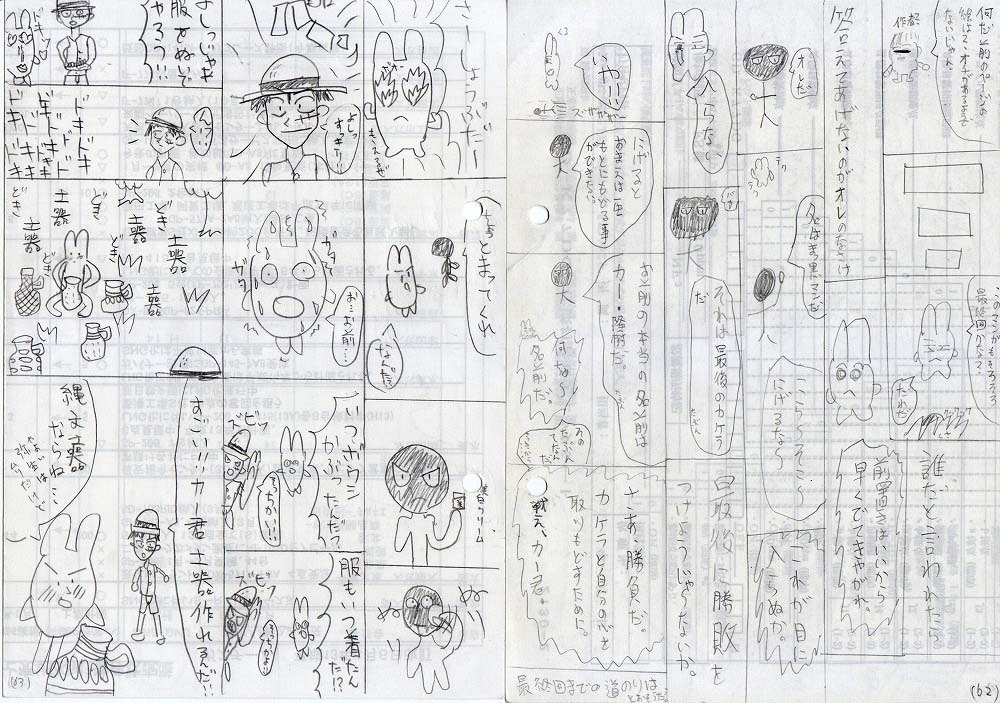 何だと前のページの
絵はて、オチがあるまで
ないじゃん。
作者
このマンガもそろそろ
最終回かな？
だれだ
誰だと言われたら
答えてあげないのがオレのなさけ
前置きはいいから
早くでてきやがれ。
オレだ
名はまっ黒マンだ
こら〜そこ〜
にげるな〜
これが目に
入らぬか。
入らない
それは最後のカケラ
だ
たぶん
最後に勝敗を
つけようじゃないか。
いやだ
ズーザザザー
にげるのと
おまえは一生
もとにもどる事
ができない。
お前の本当の名前は
カー・隆樹だ。
何だな〜
名前だ。
さあ、勝負だ。
カケラと自分の心を
取りもどすために。
戦え、カー君。
最終回までの道のりは
とおそうだ。
(62)
さーしょうぶだー
もえるぜ
ちょっとまってくれ
なんだ。
美白クリーム
ぬり
ぬり
よしっ
すっきり!!
ガタ
ガタ
お…お前…
いつボウシ
かぶったんだ?
ズビシ
そっちかい!!
服もいつ着たん
だ!?
ズビシ
そっちかよ!
よしっじゃあ
服をぬいで
やろう!!!
ドキ
ドキ
んっ?
ドキ
ドキ
ドキ
ドキ
ドキ
ドキ
土器
どき
土器
どき
土器
どき
土器
どき
土器
すごい!!!カー君土器作れるんだ!!
縄文土器
ならね…
弥生は
ムリだけど
(63)